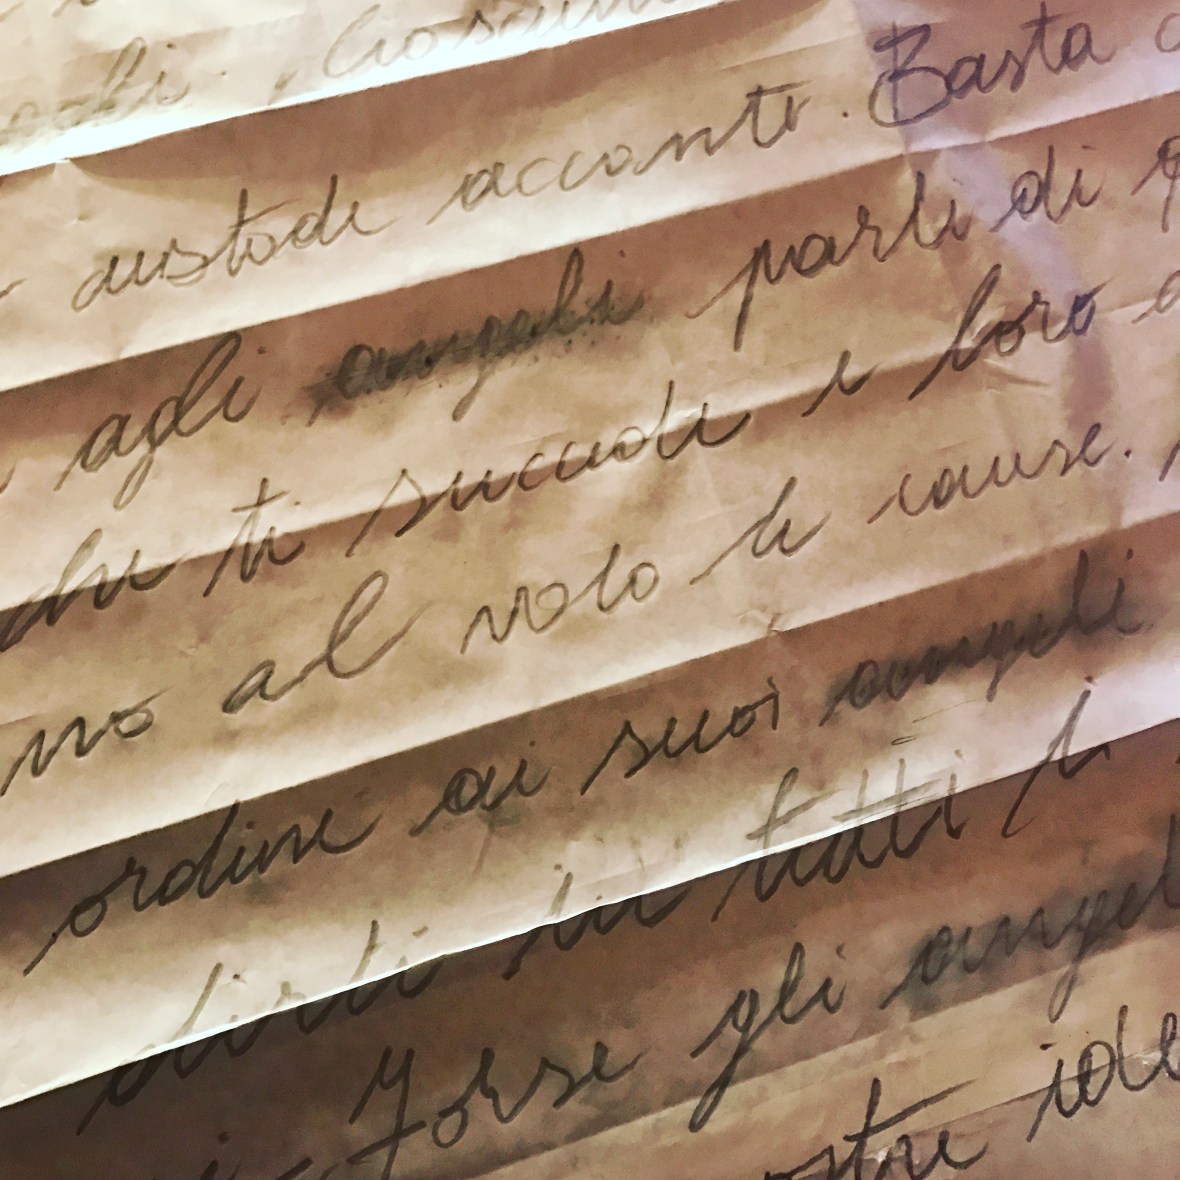 custode accanto. Basta
agli angeli parli di
che ti succede e loro
no al volo le cause.
ordine ai suoi angeli
dirti in tutti i
Forse gli angel
ostre ide